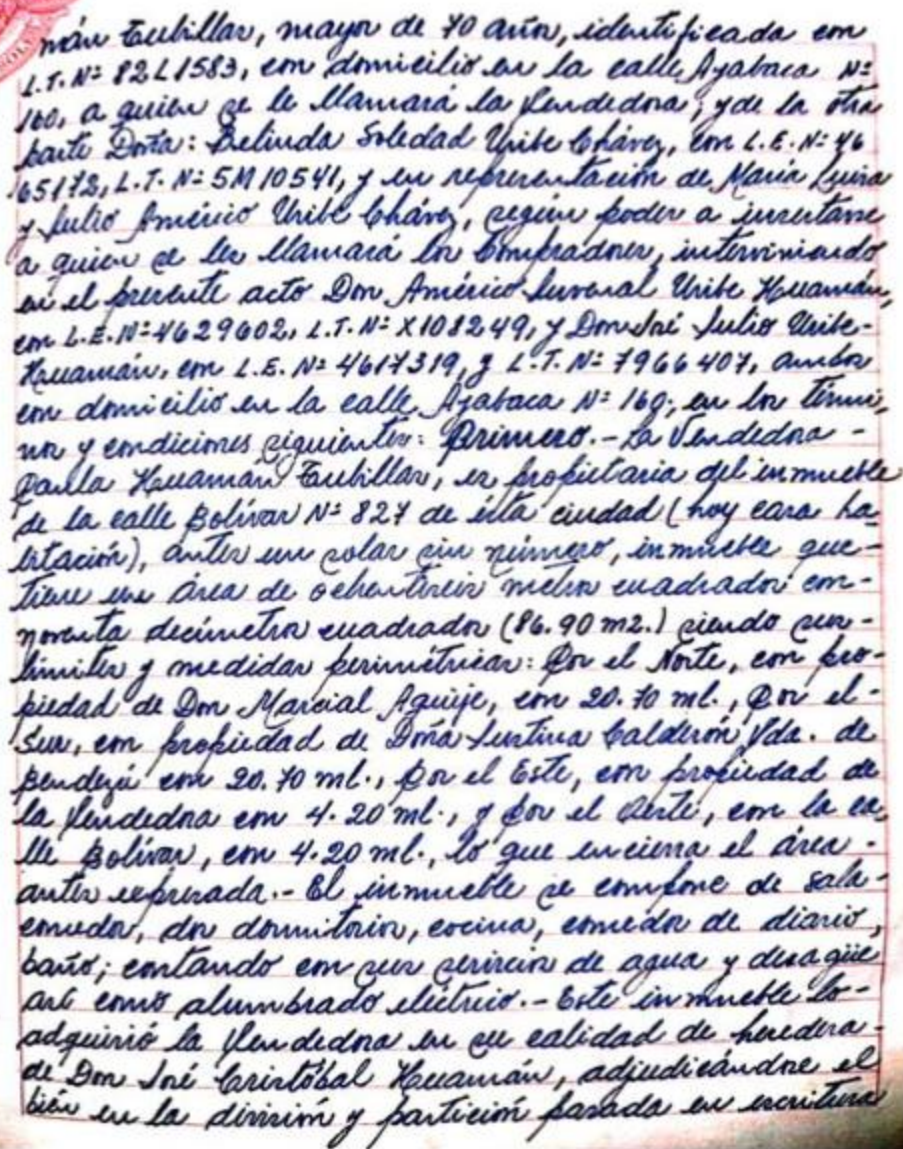 mán Tubillas, mayor de 70 años, identificada con
L.T. Nº 82L1583, con domicilio en la calle Ayabaca Nº
160, a quien se le llamará la Vendedora; y de la otra
parte Doña: Belinda Soledad Uribe Chávez, con L.E. Nº 46
65172, L.T. Nº 5M10541, y en representación de María Luisa
y Julio Américo Uribe Chávez, según poder a insertarse
a quien se les llamará los Compradores, interviniendo
en el presente acto Don Américo Juvenal Uribe Huamán,
con L.E. Nº 4629602, L.T. Nº X108249, y Don José Julio Uribe-
Huamán, con L.E. Nº 4617319, y L.T. Nº 7966407, ambos
con domicilio en la calle Ayabaca Nº 160; en los térmi,
nos y condiciones siguientes: Primero.- La Vendedora -
Paula Huamán Tubillas, es propietaria del inmueble
de la calle Bolívar Nº 827 de ésta ciudad (hoy casa ha-
bitación), antes un solar sin número, inmueble que-
tiene un área de ochentiseis metros cuadrados con-
noventa decímetros cuadrados (86.90 m2.) siendo sus-
límites y medidas perimétricas: Por el Norte, con pro-
piedad de Don Marcial Aquije, con 20.70 ml., Por el-
Sur, con propiedad de Doña Justina Calderón Vda. de
Bendezú con 20.70 ml., Por el Este, con propiedad de
la Vendedora con 4.20 ml., y Por el Oeste, con la ca,
lle Bolívar, con 4.20 ml., lo que encierra el área -
antes expresada.- El inmueble se compone de sala-
comedor, dos dormitorios, cocina, comedor de diario,
baño; contando con sus servicios de agua y desagüe
así como alumbrado eléctrico.- Este inmueble lo-
adquirió la Vendedora en su calidad de heredera-
de Don José Cristóbal Huamán, adjudicándose el
bién en la división y partición pasada en escritura